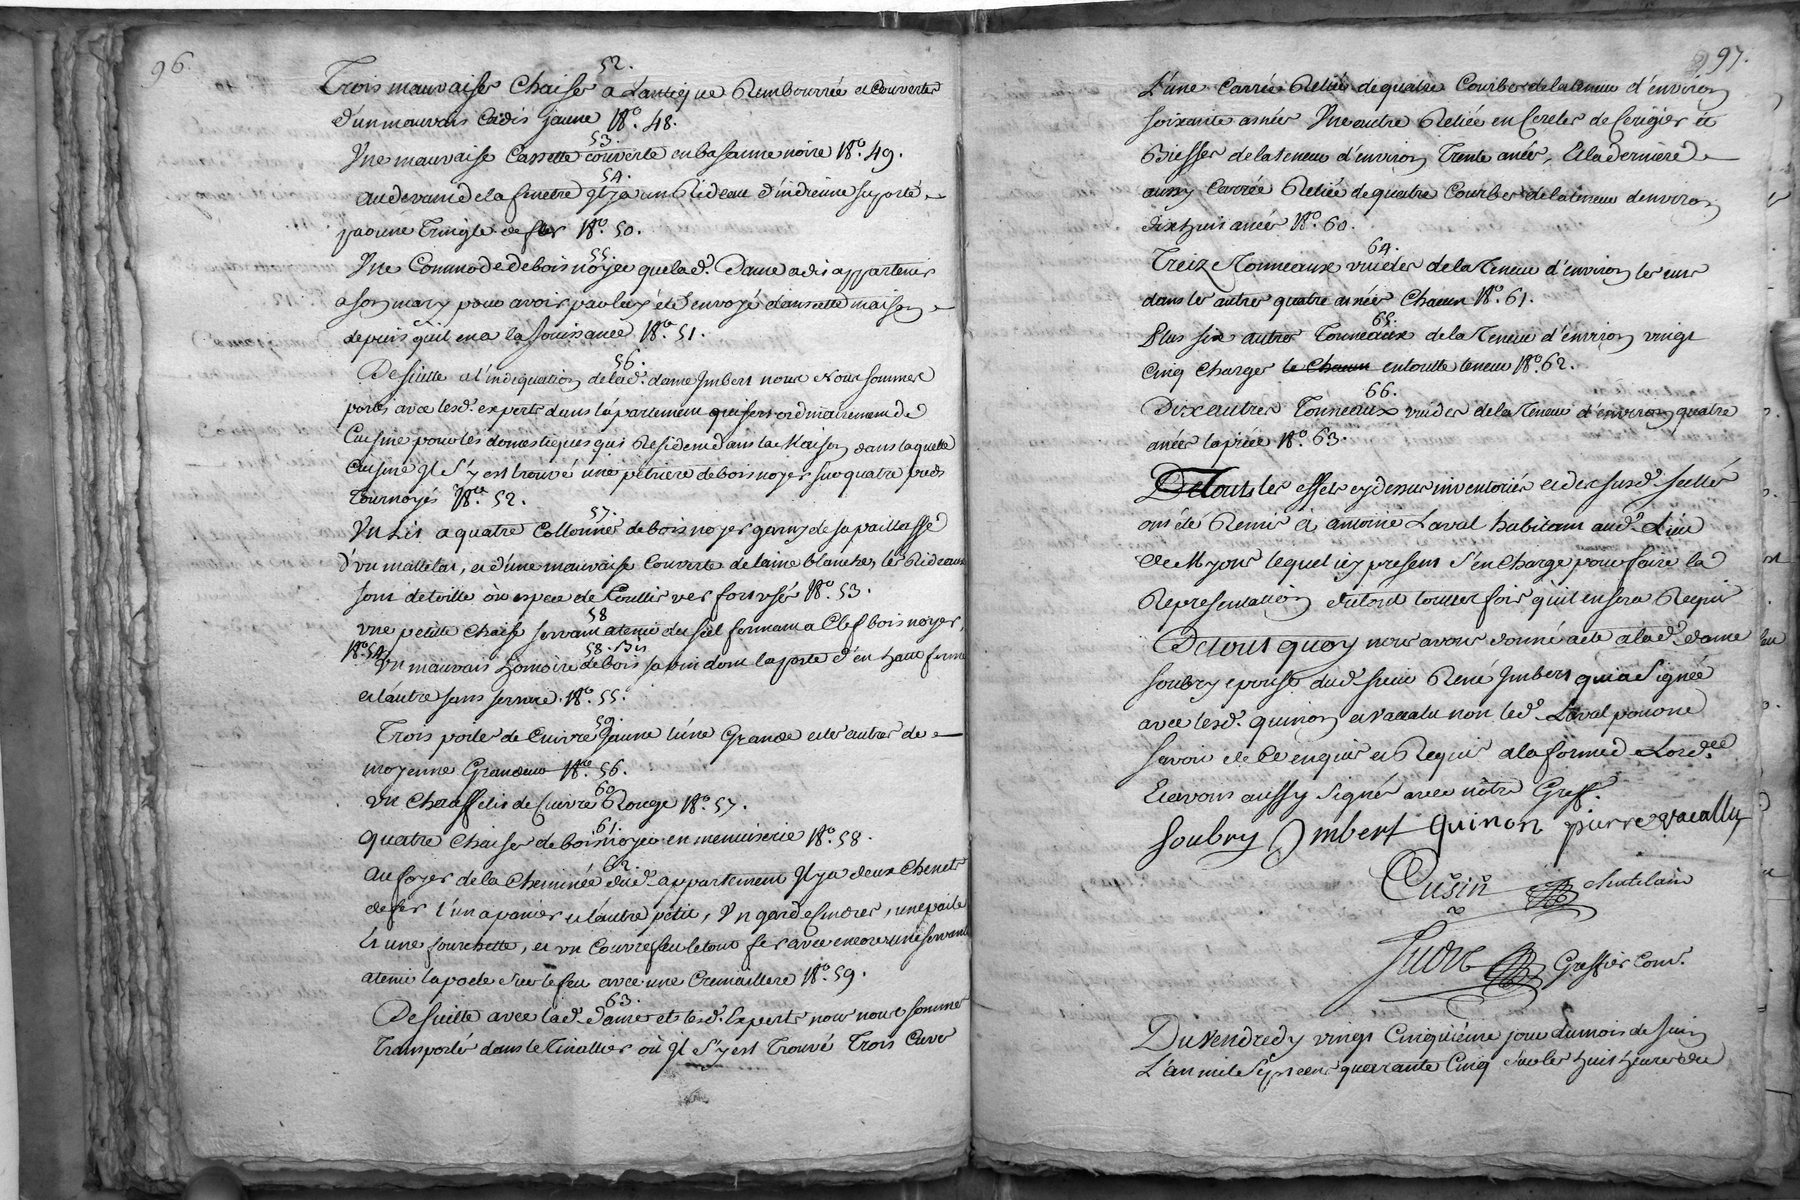 96.
52.
Trois mauvaises Chaises a Lantique Rembourrée et Couvertes
d'un mauvais Cadis jaune No. 48.
53.
Une mauvaise Cassette couverte en basanne noire No. 49.
54.
au devant de la fenetre Il ya un Rideau d'indienne suporté
par une Tringle de fer No. 50.
55.
Une Commode de bois noyer que lad. Dame a dit appartenir
a son mary pour avoir par luy été envoyé dans cette maison
depuis qu'il en a la Jouissance No. 51.
56.
De suitte a l'indiquation de lad. dame Imbert nous Nous sommes
portés avec lesd. experts dans l'apartement qui sert ordinairement de
Cuisine pour les domestiques qui Resident dans la Maison dans laquelle
Cuisine Il S'y est trouvé une pétrière de bois noyer sur quatre pieds
Tournoyés No. 52.
57.
Un Lit a quatre Collonnes de bois noyer garny de sa paillasse
d'un mattelat, et d'une mauvaise Couverte de laine blanche, les Rideaux
sont de toille ou espece de Couttis vert fort usés No. 53.
58
une petitte Chaise servant a tenir du sel fermant a Clef bois noyer,
No. 54
58. bis
Un mauvais Garderobe de bois sapin dont la porte d'en haut ferme
et l'autre sans serrure No. 55.
59.
Trois poiles de Cuivre Jaune l'une Grande et les autres de
moyenne Grandeur No. 56.
60
Un Chauffelit de Cuivre Rouge No. 57.
61.
Quatre Chaises de bois noyer en menuiserie No. 58.
62.
Au foyer de la Cheminée dud. appartement Il ya deux Chenets
de fer l'un a panier et l'autre petit, Un garde Cendres, une poile
Et une fourchette, et un Couvrefeu le tout fer avec encore une servante
a tenir la poele sur le feu avec une Cremaillere No. 59.
63.
De suitte avec lad. dame et lesd. Experts nous nous sommes
Transportés dans le Tinallier où Il S'y est Trouvé Trois Cuve
97.
L'une Carrée Reliée de quatre Courbes de la teneur d'environ
soixante asnées Une autre Reliée en Cercles de Cerizier et
de la teneur d'environ Trente anées, Et la derniere
aussy Carrée Reliée de quatre Courbes de la teneur denviron
dixhuit anées No. 60.
64.
Treize Tonneaux vuides de la Teneur d'environ les uns
dans les autres quatre asnées Chacun No. 61.
65.
Plus six autres Tonneaux de la Teneur d'environ vingt
Cinq Charges le Chacun en toutte teneur No. 62.
66.
Dix autres Tonneaux vuides de la Teneur d'environ quatre
anées la piéce No. 63.
De Touts les effets cy dessus inventoriés et des susd. scellés
ont été Remis a antoine Laval habitant aud. Lieu
de Myons lequel icy present S'en Charge pour faire la
Representation du tout touttes fois qu'il en sera Requis
De tout quoy nous avons donné acte a lad. dame
Soubry epouse dud. sieur René Imbert qui a Signée
avec lesd. Quinon et Vacalu non led. Laval pour ne
Savoir de Ce enquis et Requis a la forme de Lord.ce
Et avons aussy Signés avec nôtre Greff.
Soubry Imbert Quinon pierre vacally
Cusin chatelain
Judre Greffier Com.
Du Vendredy vingt Cinquiéme jour du mois de Juin
L'an mil Sept cent quarante Cinq sur les huit heures du